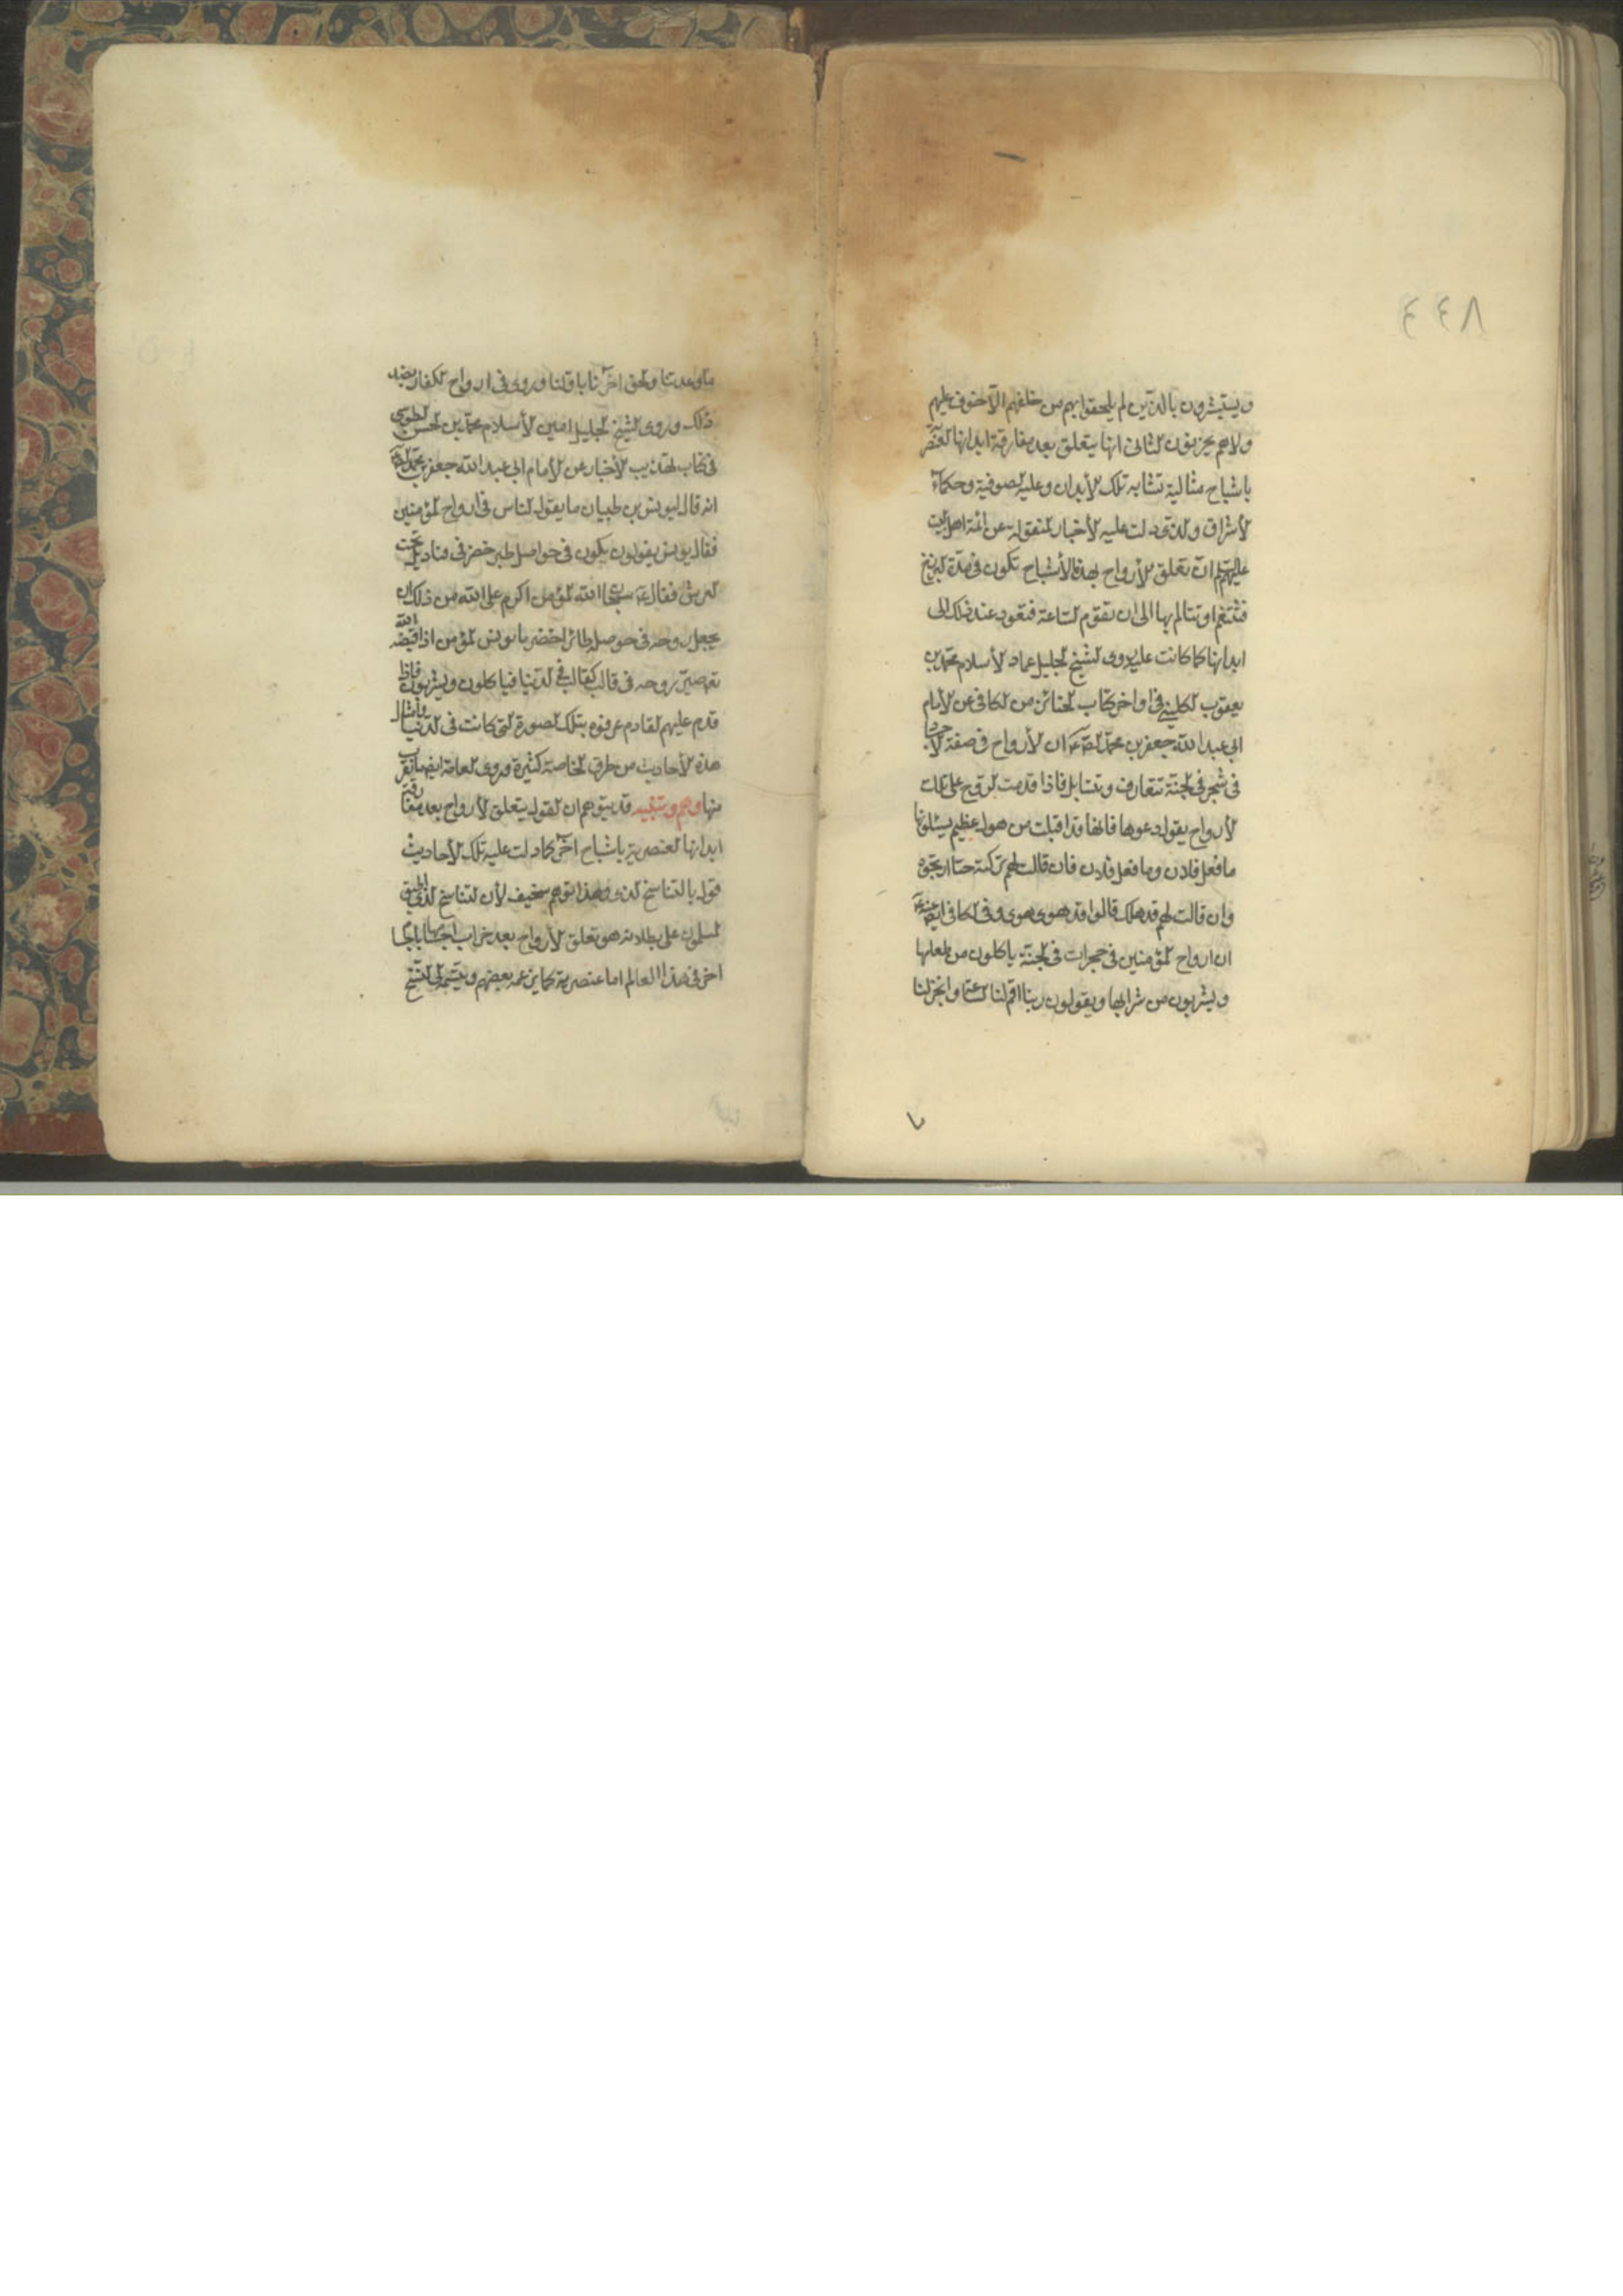 ٤٤٨
ويستبشرون بالذين لم يلحقوا بهم من خلفهم الا خوف عليهم
ولاهم يحزنون الثانى انها يتعلق بعد مفارقة ابدانها العنصرية
باشباح مثالية تشابه تلك الأبدان وعليه الصوفية وحكماء
الأشراق والذى دلت عليه الأخبار المنقولة عن ائمة اهل البيت
عليهم السلم ان تعلق الأرواح بهذه الأشباح تكون فى مدة البرزخ
فتتنعم او تتألم بها الى ان تقوم الساعة فتعود عند ذلك الى
ابدانها كما كانت عليه روى الشيخ الجليل عماد الأسلام محمد بن
يعقوب الكلينى فى اواخر كتاب الجنائز من الكافى عن الأمام
ابى عبد الله جعفر بن محمد الصادق ع ان الأرواح فى صفة الاجساد
فى شجر فى الجنة تتعارف وتتسائل فاذا قدمت الروح على تلك
الأرواح يقول دعوها فانها قد اقبلت من هول عظيم يسئلونها
ما فعل فلان وما فعل فلان فان قالت لهم تركته حيا ارتجوه
وان قالت لهم قد هلك قالوا قد هوى هوى وفى الكافى ايضا عنه ع
ان ارواح المؤمنين فى حجرات فى الجنة ياكلون من طعامها
ويشربون من شرابها ويقولون ربنا اقم لنا الساعة وانجز لنا
ما وعدتنا والحق اخرنا باولنا وروى فى ارواح الكفار بضد
ذلك وروى الشيخ الجليل امين الأسلام محمد بن الحسن الطوسى
فى كتاب تهذيب الأخبار عن الأمام ابى عبد الله جعفر بن محمد الصادق ع
انه قال ليونس بن ظبيان ما يقول الناس فى ارواح المؤمنين
فقال يونس يقولون يكون فى حواصل طير خضر فى قناديل تحت
العرش فقال ع سبحان الله المؤمن اكرم على الله من ذلك ان
يجعل روحه فى حوصلة طائر اخضر يا يونس المؤمن اذا قبضه الله
تع صير روحه فى قالب كقالبه فى الدنيا فياكلون ويشربون فاذا
قدم عليهم القادم عرفوه بتلك الصورة التى كانت فى الدنيا وامثال
هذه الأحاديث من طرق الخاصة كثيرة وروى العامة ايضا ما يقرب
منها وهم وتنبيه قد يتوهم ان القول بتعلق الأرواح بعد مفارقة
ابدانها العنصرية باشباح اخر كما دلت عليه تلك الأحاديث
قول بالتناسخ وهذا توهم سخيف لأن التناسخ الذى اطبق
المسلمون على بطلانه هو تعلق الأرواح بعد خراب اجسادها باجسام
اخر فى هذا العالم اما عنصرية كما يزعمه بعضهم ويقسمه الى النسخ